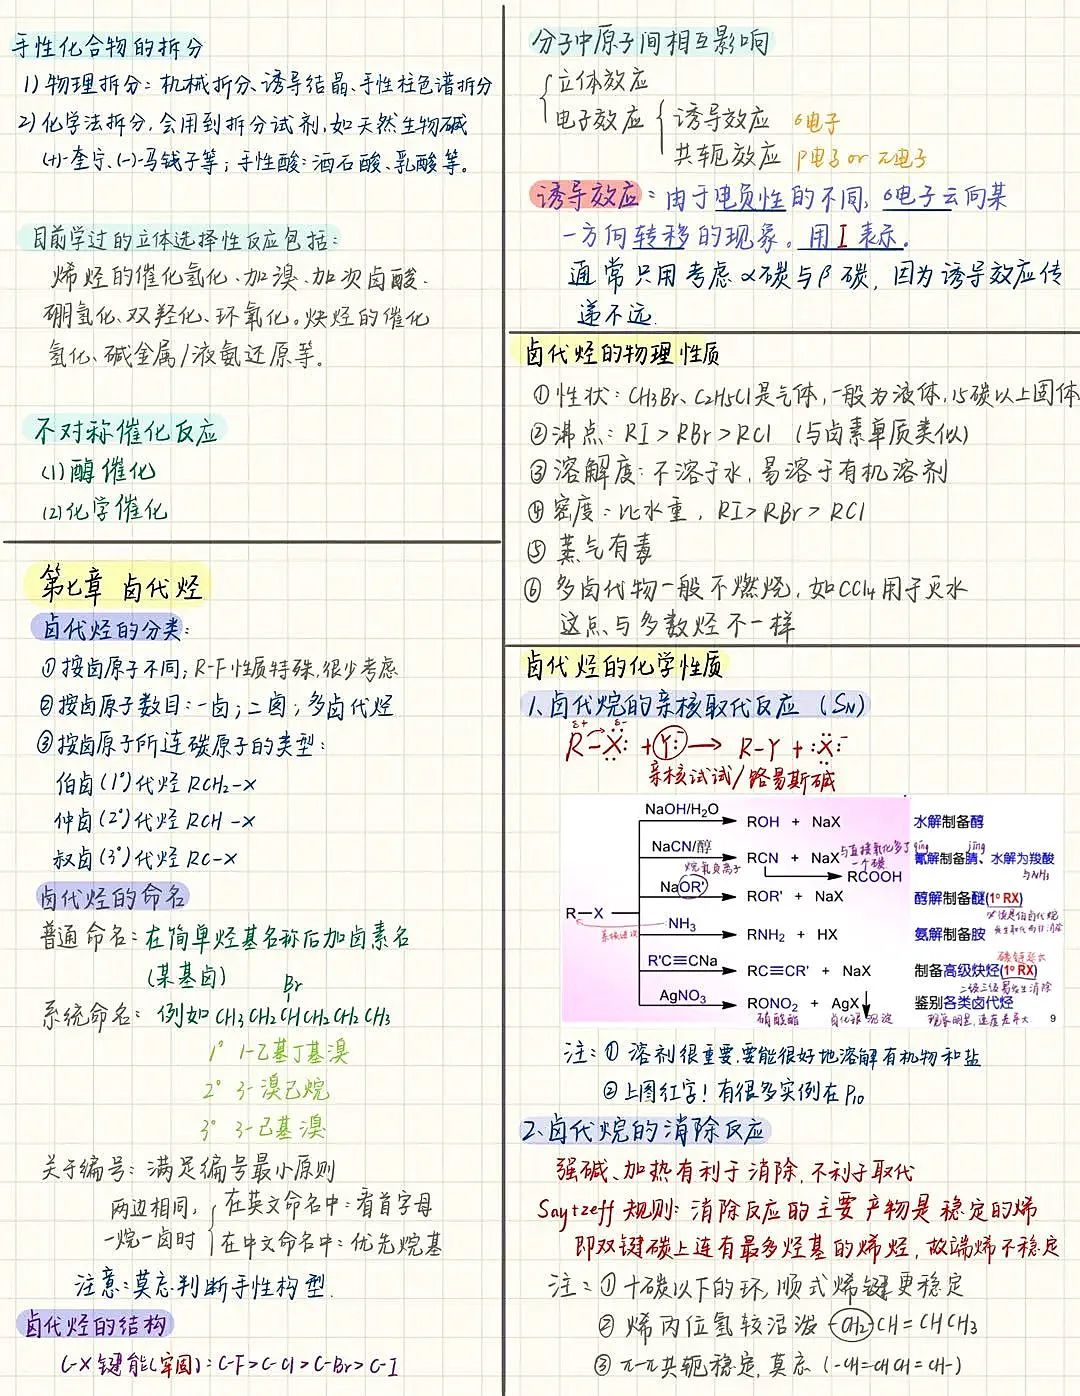 手性化合物的拆分
1) 物理拆分：机械拆分、诱导结晶、手性柱色谱拆分
2) 化学法拆分，会用到拆分试剂，如天然生物碱
(+)-奎宁、(-)-马钱子等；手性酸：酒石酸、乳酸等。
目前学过的立体选择性反应包括：
烯烃的催化氢化、加溴、加次卤酸、
硼氢化、双羟化、环氧化。炔烃的催化
氢化、碱金属/液氨还原等。
不对称催化反应
(1) 酶催化
(2) 化学催化
第七章 卤代烃
卤代烃的分类：
①按卤原子不同；R-F性质特殊，很少考虑
②按卤原子数目：一卤；二卤；多卤代烃
③按卤原子所连碳原子的类型：
伯卤(1°)代烃 RCH₂-X
仲卤(2°)代烃 RCH-X
叔卤(3°)代烃 RC-X
卤代烃的命名
普通命名：在简单烃基名称后加卤素名
(某基卤)
Br
系统命名：例如 CH₃CH₂CHCH₂CH₂CH₃
1° 1-乙基丁基溴
2° 3-溴己烷
3° 3-己基溴
关于编号：满足编号最小原则
两边相同，在英文命名中：看首字母
一烷一卤时 在中文命名中：优先烷基
注意：莫忘判断手性构型.
卤代烃的结构
C-X键能(牢固)：C-F>C-Cl>C-Br>C-I
分子中原子间相互影响
立体效应
电子效应 诱导效应 σ电子
共轭效应 p电子 or π电子
诱导效应：由于电负性的不同，σ电子云向某
一方向转移的现象。用I表示。
通常只用考虑α碳与β碳，因为诱导效应传
递不远.
卤代烃的物理性质
①性状：CH₃Br、C₂H₅Cl是气体，一般为液体，15碳以上固体
②沸点：RI>RBr>RCl (与卤素单质类似)
③溶解度：不溶于水，易溶于有机溶剂
④密度：比水重，RI>RBr>RCl
⑤蒸气有毒
⑥多卤代物一般不燃烧，如CCl₄用于灭火
这点与多数烃不一样
卤代烃的化学性质
1、卤代烷的亲核取代反应 (SN)
δ+ δ-
R-X: + Y:⁻ → R-Y + :X:⁻
亲核试试/路易斯碱
NaOH/H₂O ROH + NaX 水解制备醇
NaCN/醇 RCN + NaX 与直接氧化多了一个碳 RCOOH qíng jīng 氰解制备腈、水解为羧酸
与NH₃
烷氧负离子
NaOR' ROR' + NaX 醇解制备醚(1° RX)
R-X
NH₃ RNH₂ + HX 氨解制备胺
碳链延长
R'C≡CNa RC≡CR' + NaX 制备高级炔烃(1° RX)
二级三级易发生消除
AgNO₃ RONO₂ + AgX↓ 鉴别各类卤代烃
硝酸酯 卤化银沉淀 9
注：①溶剂很重要，要能很好地溶解有机物和盐
②上图红字！有很多实例在P₁₀
2、卤代烷的消除反应
强碱、加热有利于消除，不利于取代
Saytzeff规则：消除反应的主要产物是稳定的烯
即双键碳上连有最多烃基的烯烃，故端烯不稳定
注：①十碳以下的环，顺式烯键更稳定
②烯丙位氢较活泼 -CH₂-CH=CHCH₃
③π-π共轭稳定，莫忘 (-CH=CHCH=CH-)